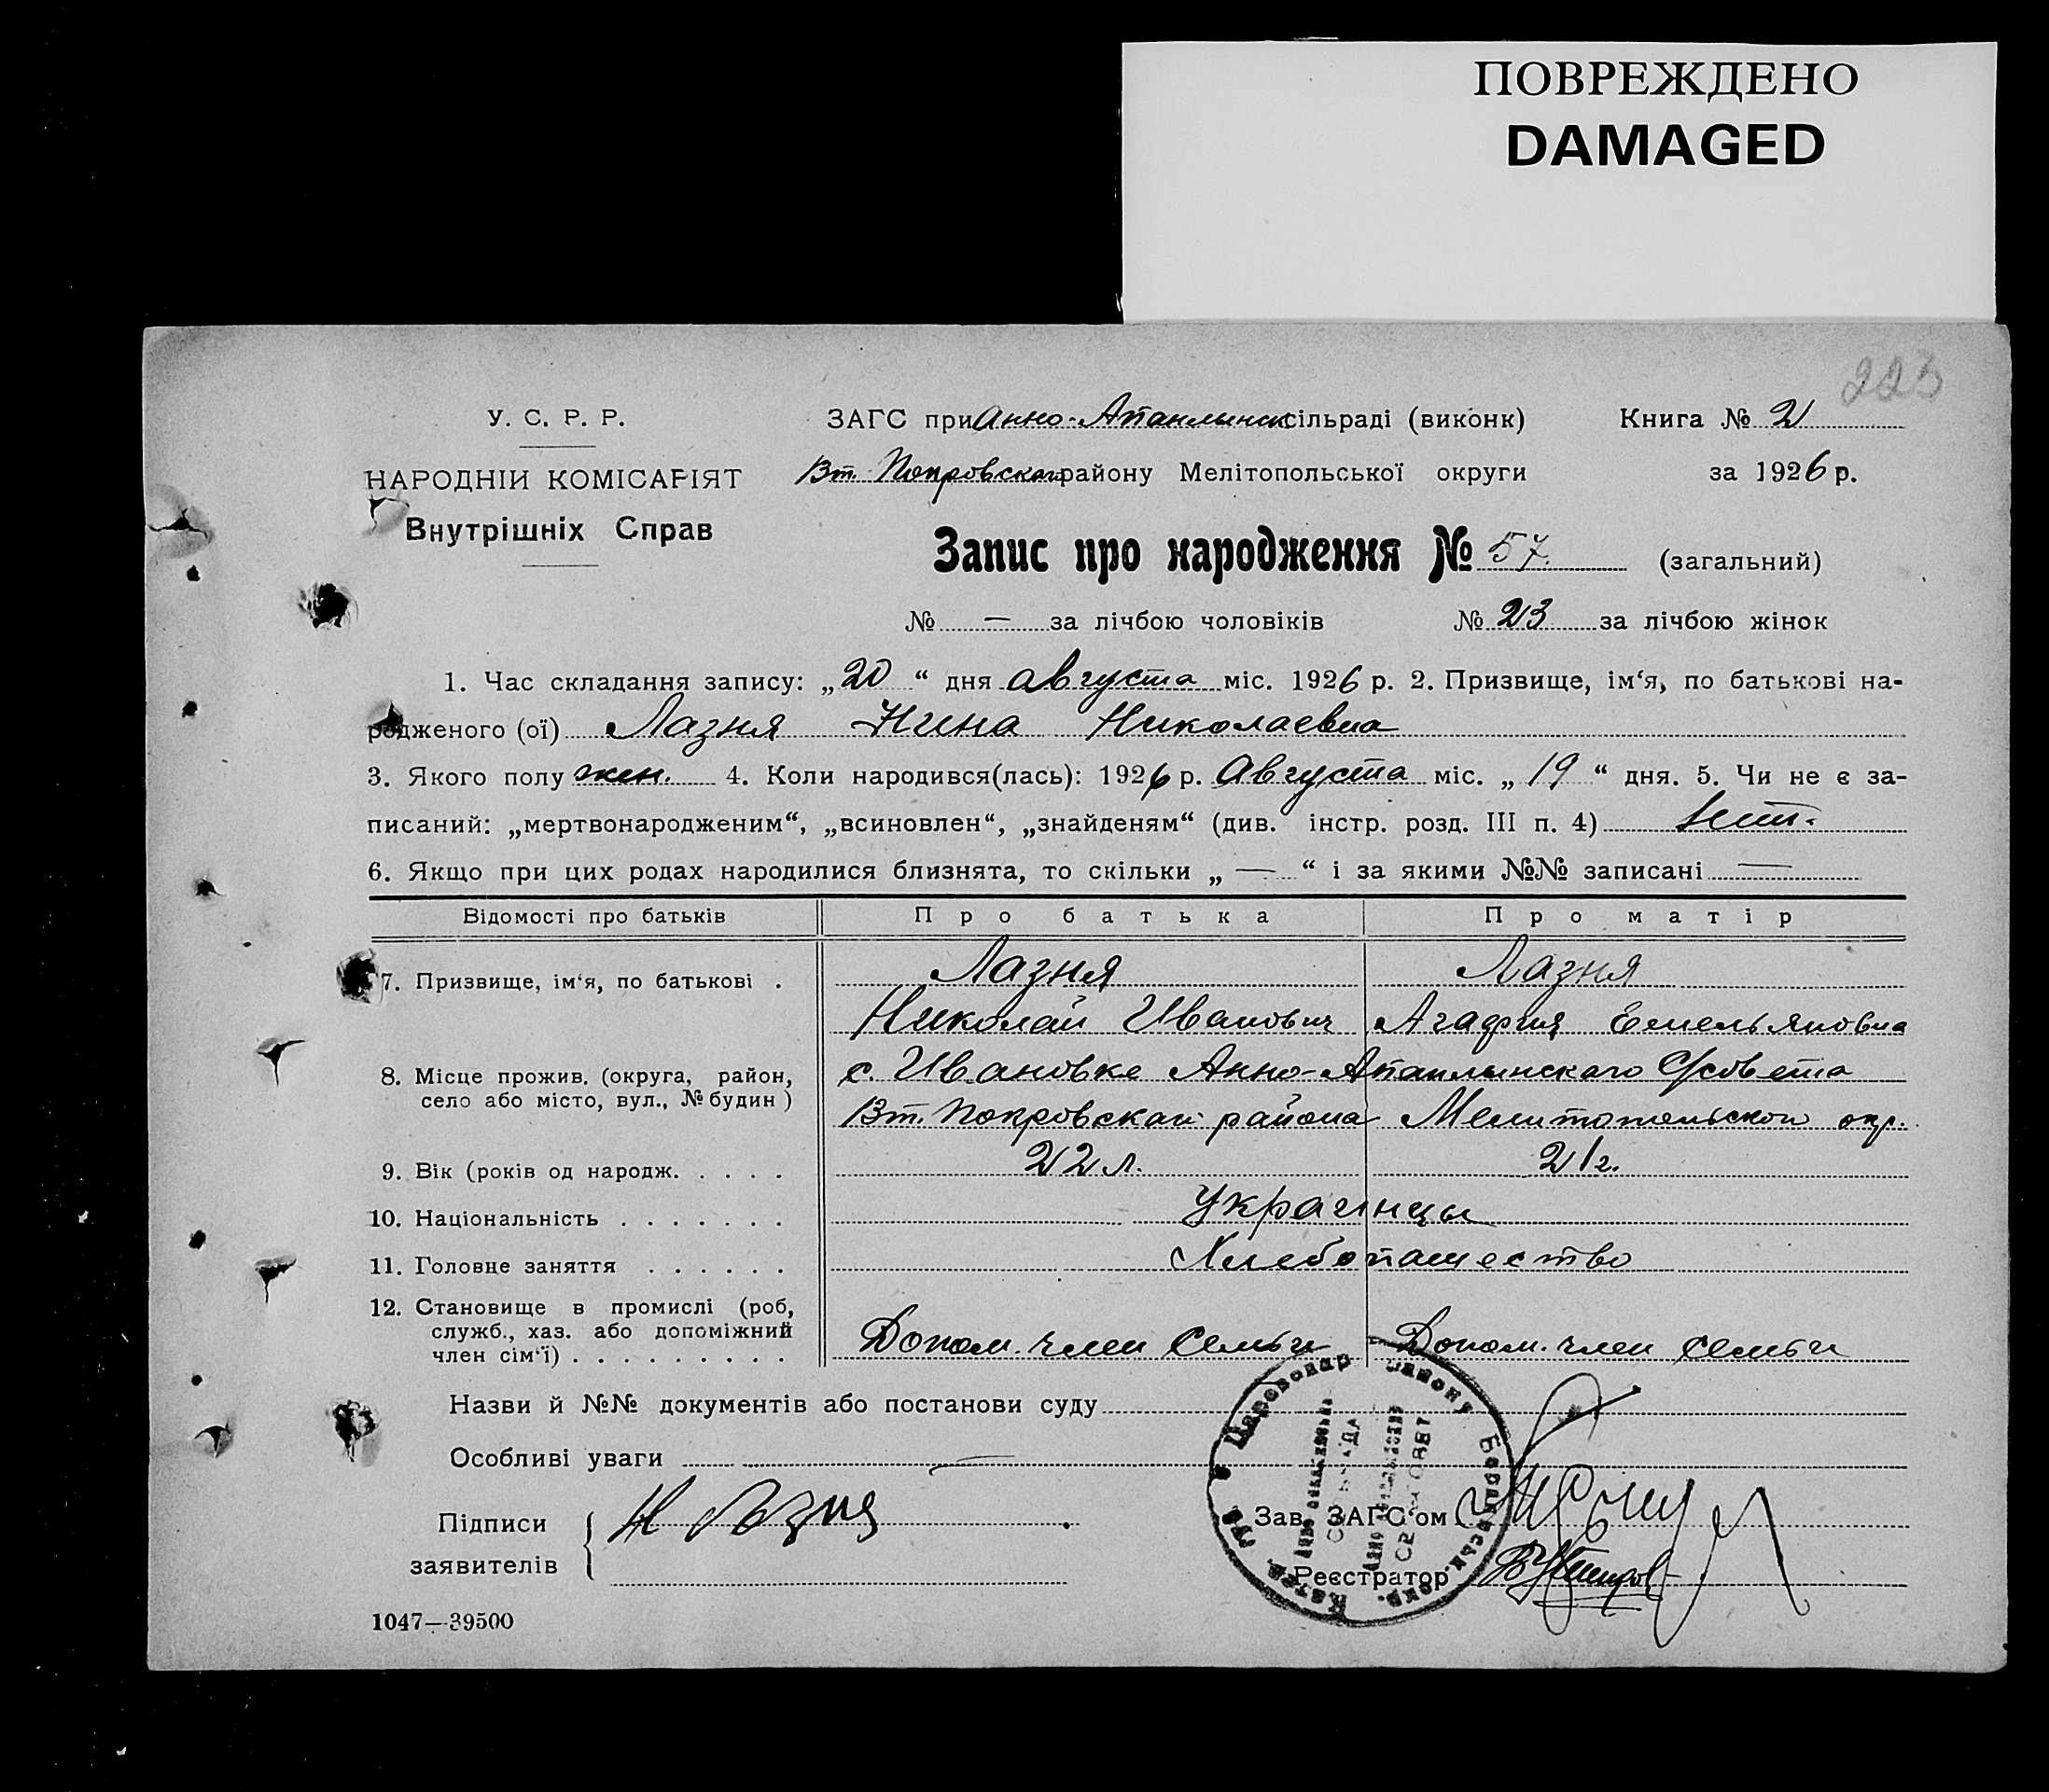 ПОВРЕЖДЕНО
DAMAGED
223
У. С. Р. Р.
ЗАГС при Анно-Апанлынск сільраді (виконк)
Книга № 2
НАРОДНІЙ КОМІСАРІЯТ
Вт. Покровскаго району Мелітопольської округи
за 1926 р.
Внутрішніх Справ
Запис про народження № 57. (загальний)
№ — за лічбою чоловіків № 23 за лічбою жінок
1. Час складання запису: „20“ дня Августа міс. 1926 р. 2. Призвище, ім‘я, по батькові на-
родженого (ої) Лазня Нина Николаевна
3. Якого полу жен. 4. Коли народився(лась): 1926 р. Августа міс. „19“ дня. 5. Чи не є за-
писаний: „мертвонародженим“, „всиновлен“, „знайденям“ (див. інстр. розд. III п. 4) нет.
6. Якщо при цих родах народилися близнята, то скільки „—“ і за якими №№ записані —
Відомості про батьків Про батька Про матір
7. Призвище, ім‘я, по батькові . Лазня Лазня
Николай Иванович Агафия Емельяновна
8. Місце прожив. (округа, район, с. Ивановке Анно-Апанлынскаго С/совета
село або місто, вул., № будин) Вт. Покровскаи района Мелитопольскои окр.
9. Вік (років од народж. . . . . 22 л. 21 г.
10. Національність . . . . . . . Украинцы
11. Головне заняття . . . . . . Хлебопашество
12. Становище в промислі (роб,
служб., хаз. або допоміжний
член сім‘ї) . . . . . . . . . Допом. член семьи Допом. член семьи
Назви й №№ документів або постанови суду
Особливі уваги —
Підписи
заявителів
Н Лазня
Зав. ЗАГС‘ом
Реєстратор
1047—39500